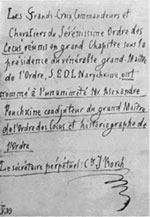 Les Grands-Croix, Commandeurs et
Chevaliers du Sérénissime Ordre des
Cocus réunis en grand Chapitre sous la
présidence du vénérable grand-Maître
de l'Ordre, S.E. D.L. Narychkine, ont
nommé à l'unanimité Mr. Alexandre
Pouchkine coadjuteur du grand Maître
de l'Ordre des Cocus et historiographe de
l'Ordre.
Le sécrétaire perpétuel: Cte J. Borch